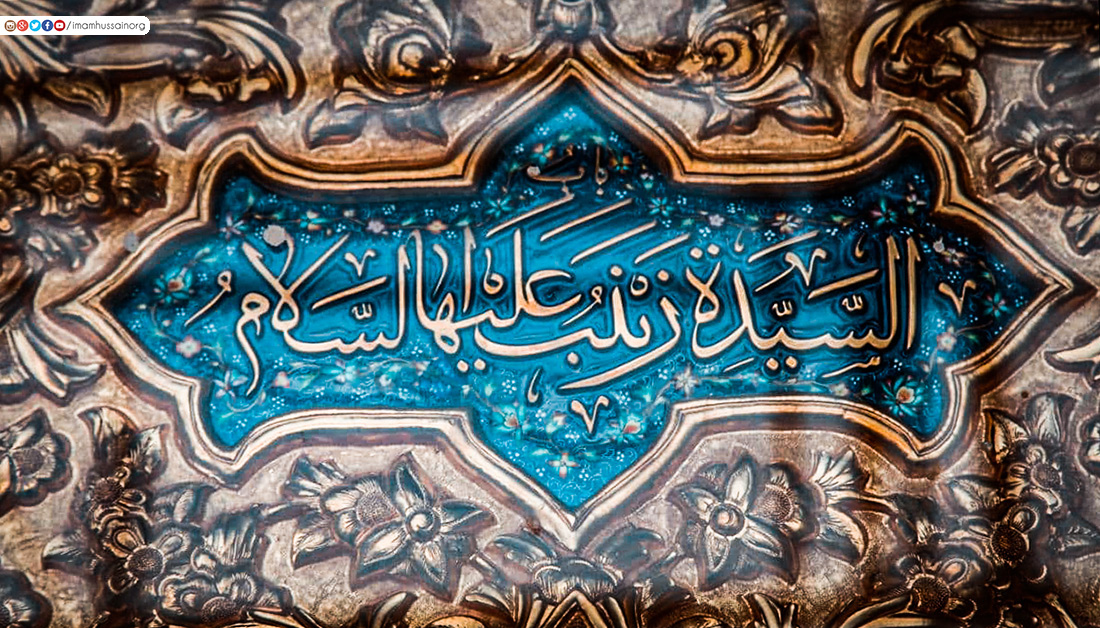 /imamhussainorg
باب
السَّيِّدَة زَينَب عَلَيْها السَّلام